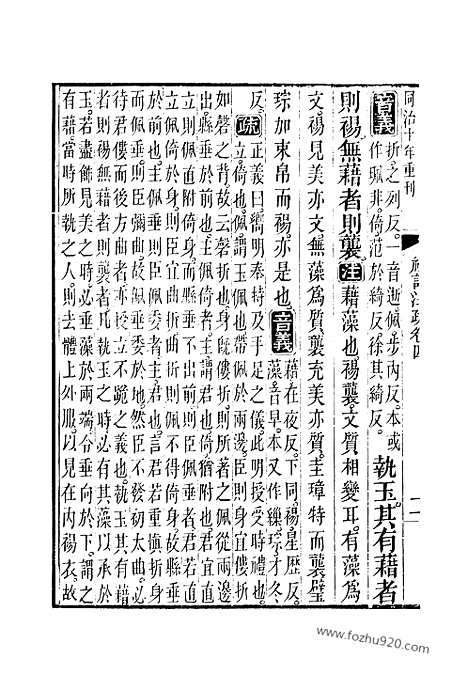 同治十年重刊
禮記注疏卷四
十一
音義 折之列反一音逝佩步內反本或
作珮非倚范於綺反徐其綺反
執玉其有藉者
則裼無藉者則襲注藉藻也裼襲文質相變耳有藻爲
文裼見美亦文無藻爲質襲充美亦質圭璋特而襲璧
琮加束帛而裼亦是也音義 藉在夜反下同裼星歷反
藻音早本又作繅琮才冬
反疏 正義曰嚮明奉持及手足之儀此明授受時禮也
立倚也佩謂玉佩也帶佩於兩邊臣則身宜僂折
如磬之背故云磬折也身既僂折則所著之佩從兩邊
出縣垂於前也主佩倚者主謂君也倚猶附也君宜直
立則佩直附倚身而縣垂不出前則臣佩垂者君若直
立佩倚於身則臣宜曲折曲折則佩不得倚身故縣垂
於前也主佩垂則臣佩委者主佩垂謂君若重愼折身
而佩垂則臣彌曲故佩委於地然臣不發初太曲必
待君僂而後方曲者亦授立不跪之義也執玉其有藉
者則裼無藉者則襲者凡執玉之時必有其藻以承於
玉若盡飾見美之時必垂藻於兩端令垂向於下謂之
有藉當時所執之人則去體上外服以見在內裼衣故
www.fozhu920.com